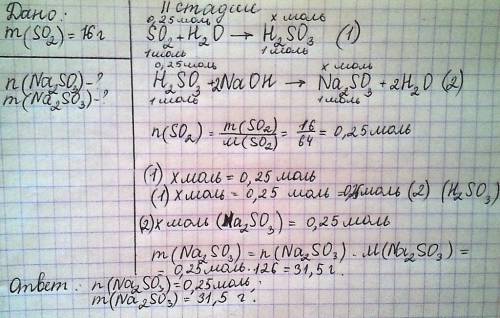 Дано:
m(SO₂) = 16 г
n(Na₂SO₃) - ?
m(Na₂SO₃) - ?
II стадии
0,25 моль x моль
SO₂ + H₂O → H₂SO₃ (1)
1 моль 1 моль
0,25 моль x моль
H₂SO₃ + 2NaOH → Na₂SO₃ + 2H₂O (2)
1 моль 1 моль
n(SO₂) = m(SO₂)/M(SO₂) = 16/64 = 0,25 моль
(1) x моль = 0,25 моль
(1) x моль = 0,25 моль = 0,25 моль (2) (H₂SO₃)
(2) x моль (Na₂SO₃) = 0,25 моль
m(Na₂SO₃) = n(Na₂SO₃) · M(Na₂SO₃) =
= 0,25 моль · 126 = 31,5 г.
Ответ: n(Na₂SO₃) = 0,25 моль,
m(Na₂SO₃) = 31,5 г.